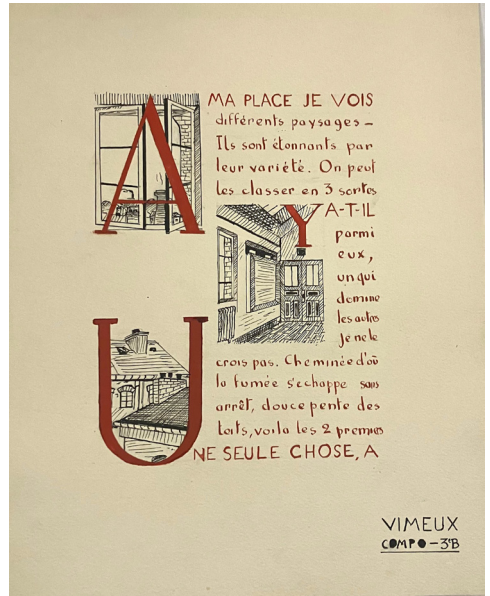 A MA PLACE JE VOIS
différents paysages –
Ils sont étonnants par
leur variété. On peut
les classer en 3 sortes
Y A-T-IL
parmi
eux,
un qui
domine
les autres
je ne le
crois pas. Cheminée d'où
la fumée s'echappe sans
arrêt, douce pente des
toits, voila les 2 premiers
UNE SEULE CHOSE, A
VIMEUX
COMPO – 3eB